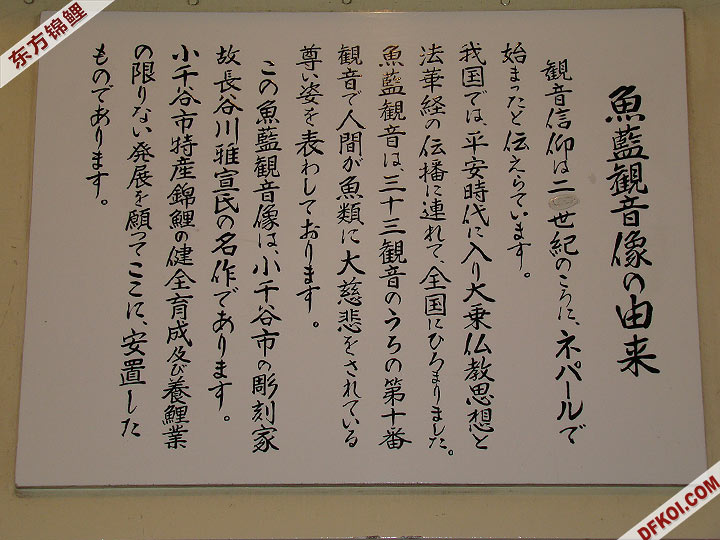 东方锦鲤
魚藍観音像の由来
観音信仰は二世紀のころに、ネパールで
始まったと伝えらています。
我国では、平安時代に入り大乗仏教思想と
法華経の伝播に連れて、全国にひろまりました。
魚藍観音は、三十三観音のうちの第十番
観音で人間が魚類に大慈悲をされている
尊い姿を表わしております。
この魚藍観音像は、小千谷市の彫刻家
故長谷川雅宣氏の名作であります。
小千谷市特産錦鯉の健全育成及び養鯉業
の限りない発展を願ってここに、安置した
ものであります。
DFKOI.COM